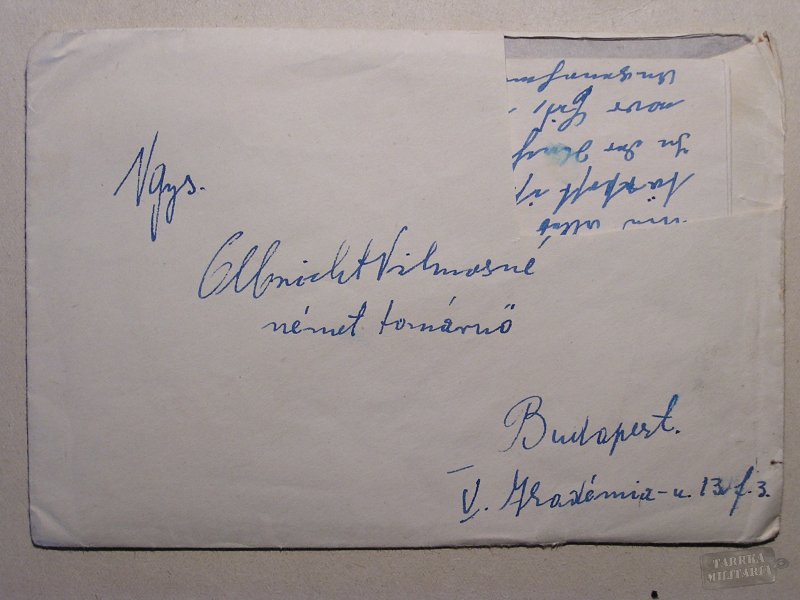 Vgys.
Olbricht Vilmosné
német tanárnő
Budapest.
V. Akadémia-u. 13. f. 3.
in der
TARRKA
MILITARIA